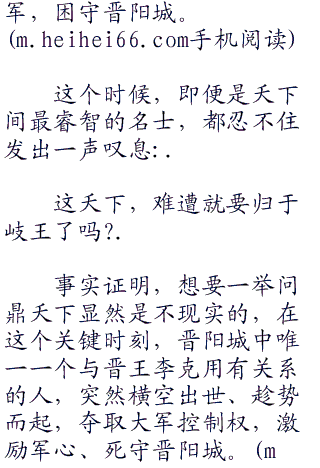 军，困守晋阳城。
(m.heihei66.com手机阅读)
这个时候，即便是天下
间最睿智的名士，都忍不住
发出一声叹息:.
这天下，难遭就要归于
岐王了吗?.
事实证明，想要一举问
鼎天下显然是不现实的，在
这个关键时刻，晋阳城中唯
一一个与晋王李克用有关系
的人，突然横空出世、趁势
而起，夺取大军控制权，激
励军心、死守晋阳城。(m